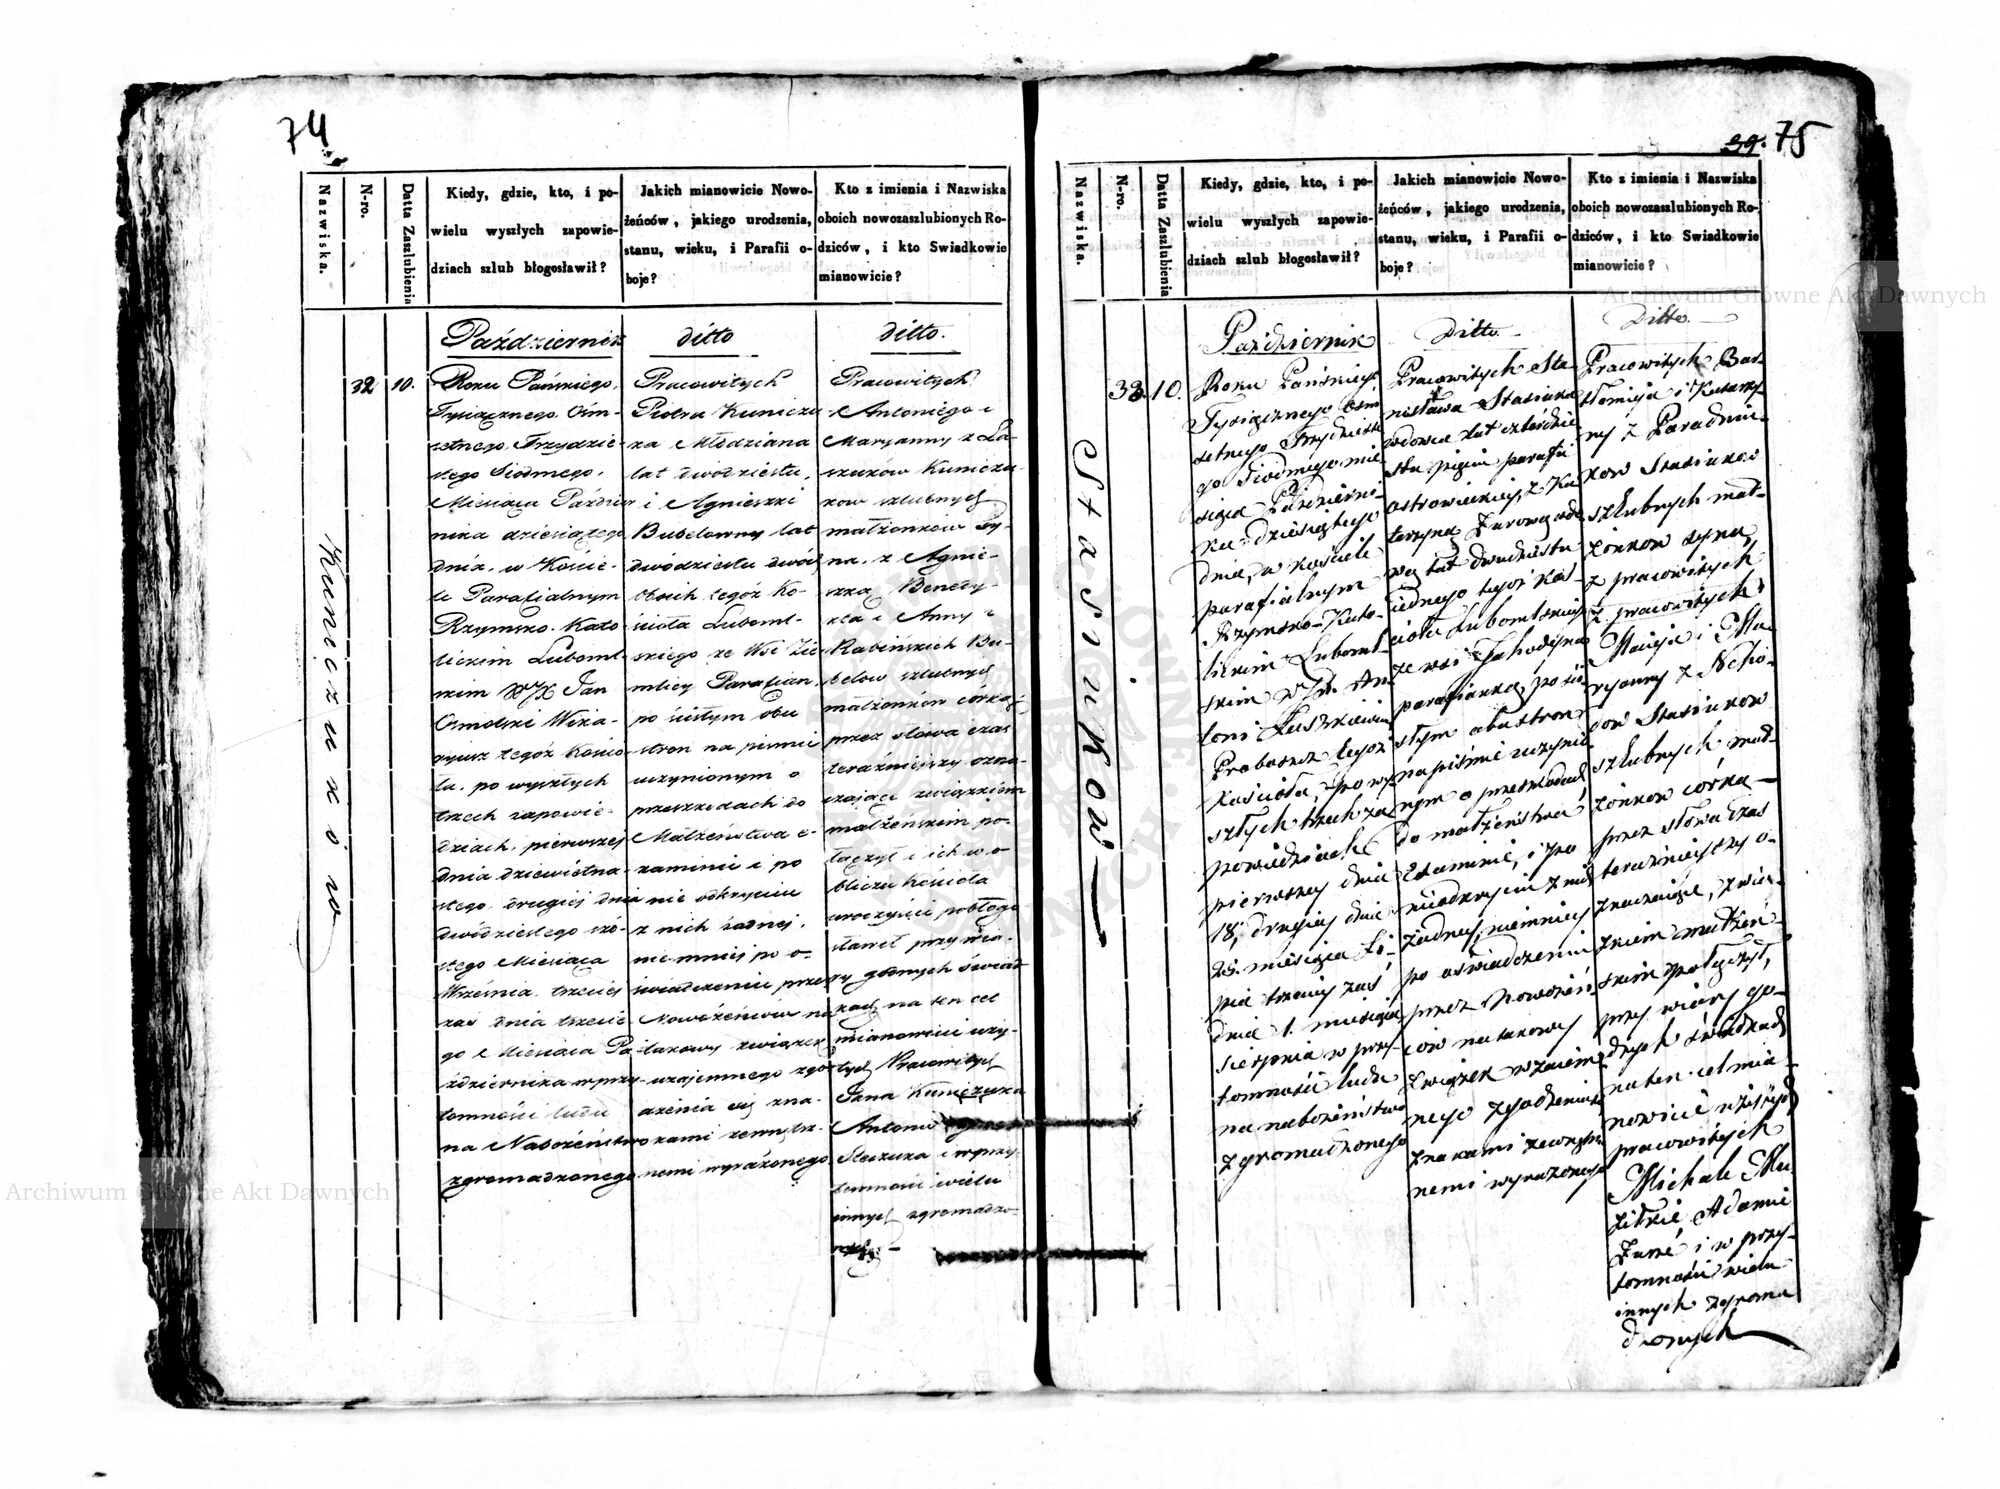 74
Nazwiska.
N-ro.
Datta Zaszlubienia
Kiedy, gdzie, kto, i po-
wielu wyszłych zapowie-
dziach szlub błogosławił?
Jakich mianowicie Nowo-
żeńców, jakiego urodzenia,
stanu, wieku, i Parafii o-
boje?
Kto z imienia i Nazwiska
oboich nowozaszlubionych Ro-
dziców, i kto Swiadkowie
mianowicie?
Kuniczuków
32
10.
Październik
Roku Pańskiego,
Tysiącznego Ośm-
setnego Trzydzie-
stego Siódmego,
Miesiąca Paździer
nika dziesiątego
dnia, w Koście-
le Parafialnym
Rzymsko-Kato-
lickim Luboml-
skim WJX Jan
Osmolski Wika-
ryusz tegóż Kościo-
ła, po wyszłych
trzech zapowie-
dziach, pierwszej
dnia dziewiętna-
stego, drugiej dnia
dwódziestego szó-
stego Miesiąca
Września, trzeciej
zaś dnia trzecie-
go Miesiąca Pa-
ździernika w przy-
tomności ludu
na Nabożeństwo
zgromadzonego
ditto
Pracowitych
Piotra Kuniczu
ka Młodziana
lat dwódziestu,
i Agnieszki
Bubelowny lat
dwódziestu dwóch
oboich tegóż Ko-
ścioła Luboml-
skiego ze Wsi Zie-
mlicy Parafian,
po ścisłym obu
stron na piśmie
uczynionym o
przeszkodach do
Małżeństwa e-
xaminie i po
nie odkryciu
z nich żadnej,
niemniej po o-
świadczeniu przez
Nowożeńców na
takowy związek
wzajemnego zgo-
dzenia się zna-
kami zewnętrz-
nemi wyrażonego
ditto.
Pracowitych
Antoniego i
Maryanny z Ła-
szuków Kuniczu-
ków szlubnych
małżonków Sy-
na, z Agnie-
szką Benedy-
kta i Anny z
Rabińskich Bu-
belów szlubnych
małżonków córką
przez słowa czas
teraźniejszy ozna-
czające związkiem
małżeńskim po-
łączył i ich w o-
bliczu Kościoła
uroczyście pobłogo-
sławił przy wia-
ry godnych świad-
kach na ten cel
mianowicie uży-
tych Pracowitych
Jana Kuniczuka
Antonie
i w przy-
tomności wielu
innych zgromadzo-
nych.
39. 75
Nazwiska.
N-ro.
Datta Zaszlubienia
Kiedy, gdzie, kto, i po-
wielu wyszłych zapowie-
dziach szlub błogosławił?
Jakich mianowicie Nowo-
żeńców, jakiego urodzenia,
stanu, wieku, i Parafii o-
boje?
Kto z imienia i Nazwiska
oboich nowozaszlubionych Ro-
dziców, i kto Swiadkowie
mianowicie?
Stasiuków
33.
10.
Październik
Roku Pańskiego
Tysiącznego Ośm
setnego Trzydzieste
go Siódmego mie
siąca Październi-
ka dziesiątego
dnia, w kościele
parafialnym
Rzymsko-Kato-
lickim Luboml-
skim WJX. An-
toni
Proboszcz tegoż
kościoła, po wy-
szłych trzech za
powiedziach
pierwszey dnia
18, drugiey dnia
25. miesiąca Li-
pca trzeciey zaś
dnia 1. miesiąca
sierpnia w przy-
tomności ludu
na nabożeństwo
zgromadzonego
Ditto
Pracowitych Sta
nisława Stasiuka
wdowca lat czterdzie
stu pięciu parafii
ostrowieckiey, z Ka
tarzyną
wą lat dwudziestu
jednego tegoż Koś-
cioła Lubomlskiego
ze wsi Jahodyna
parafianką, po ści-
słym obustron
na piśmie uczynio
nym o przeszkodach
do małżeństwa
Examinie, i po
nieodkryciu z nich
żadney, niemniey
po oświadczeniu
przez Nowożeń-
ców na takowy
związek wzaiem
nego zgodzenia się
znakami zewnętrz
nemi wyrażonego
Ditto.
Pracowitych Bar-
tłomieja i Katarzy-
ny z Paradniu-
ków Stasiuków
szlubnych mał-
żonków syna,
z pracowitych
z pracowitych
Macieja i Ma-
ryanny z
ców Stasiuków
szlubnych mał-
żonków córką
przez słowa czas
teraźniejszy o-
znaczające, zwią-
zkiem małżeń-
skim połączył,
przy wiary go-
dnych świadkach
na ten cel mia-
nowicie użytych
pracowitych
Michale
Adamie
i w przy-
tomności wielu
innych zgroma
dzonych
Archiwum Główne Akt Dawnych
Archiwum Główne Akt Dawnych